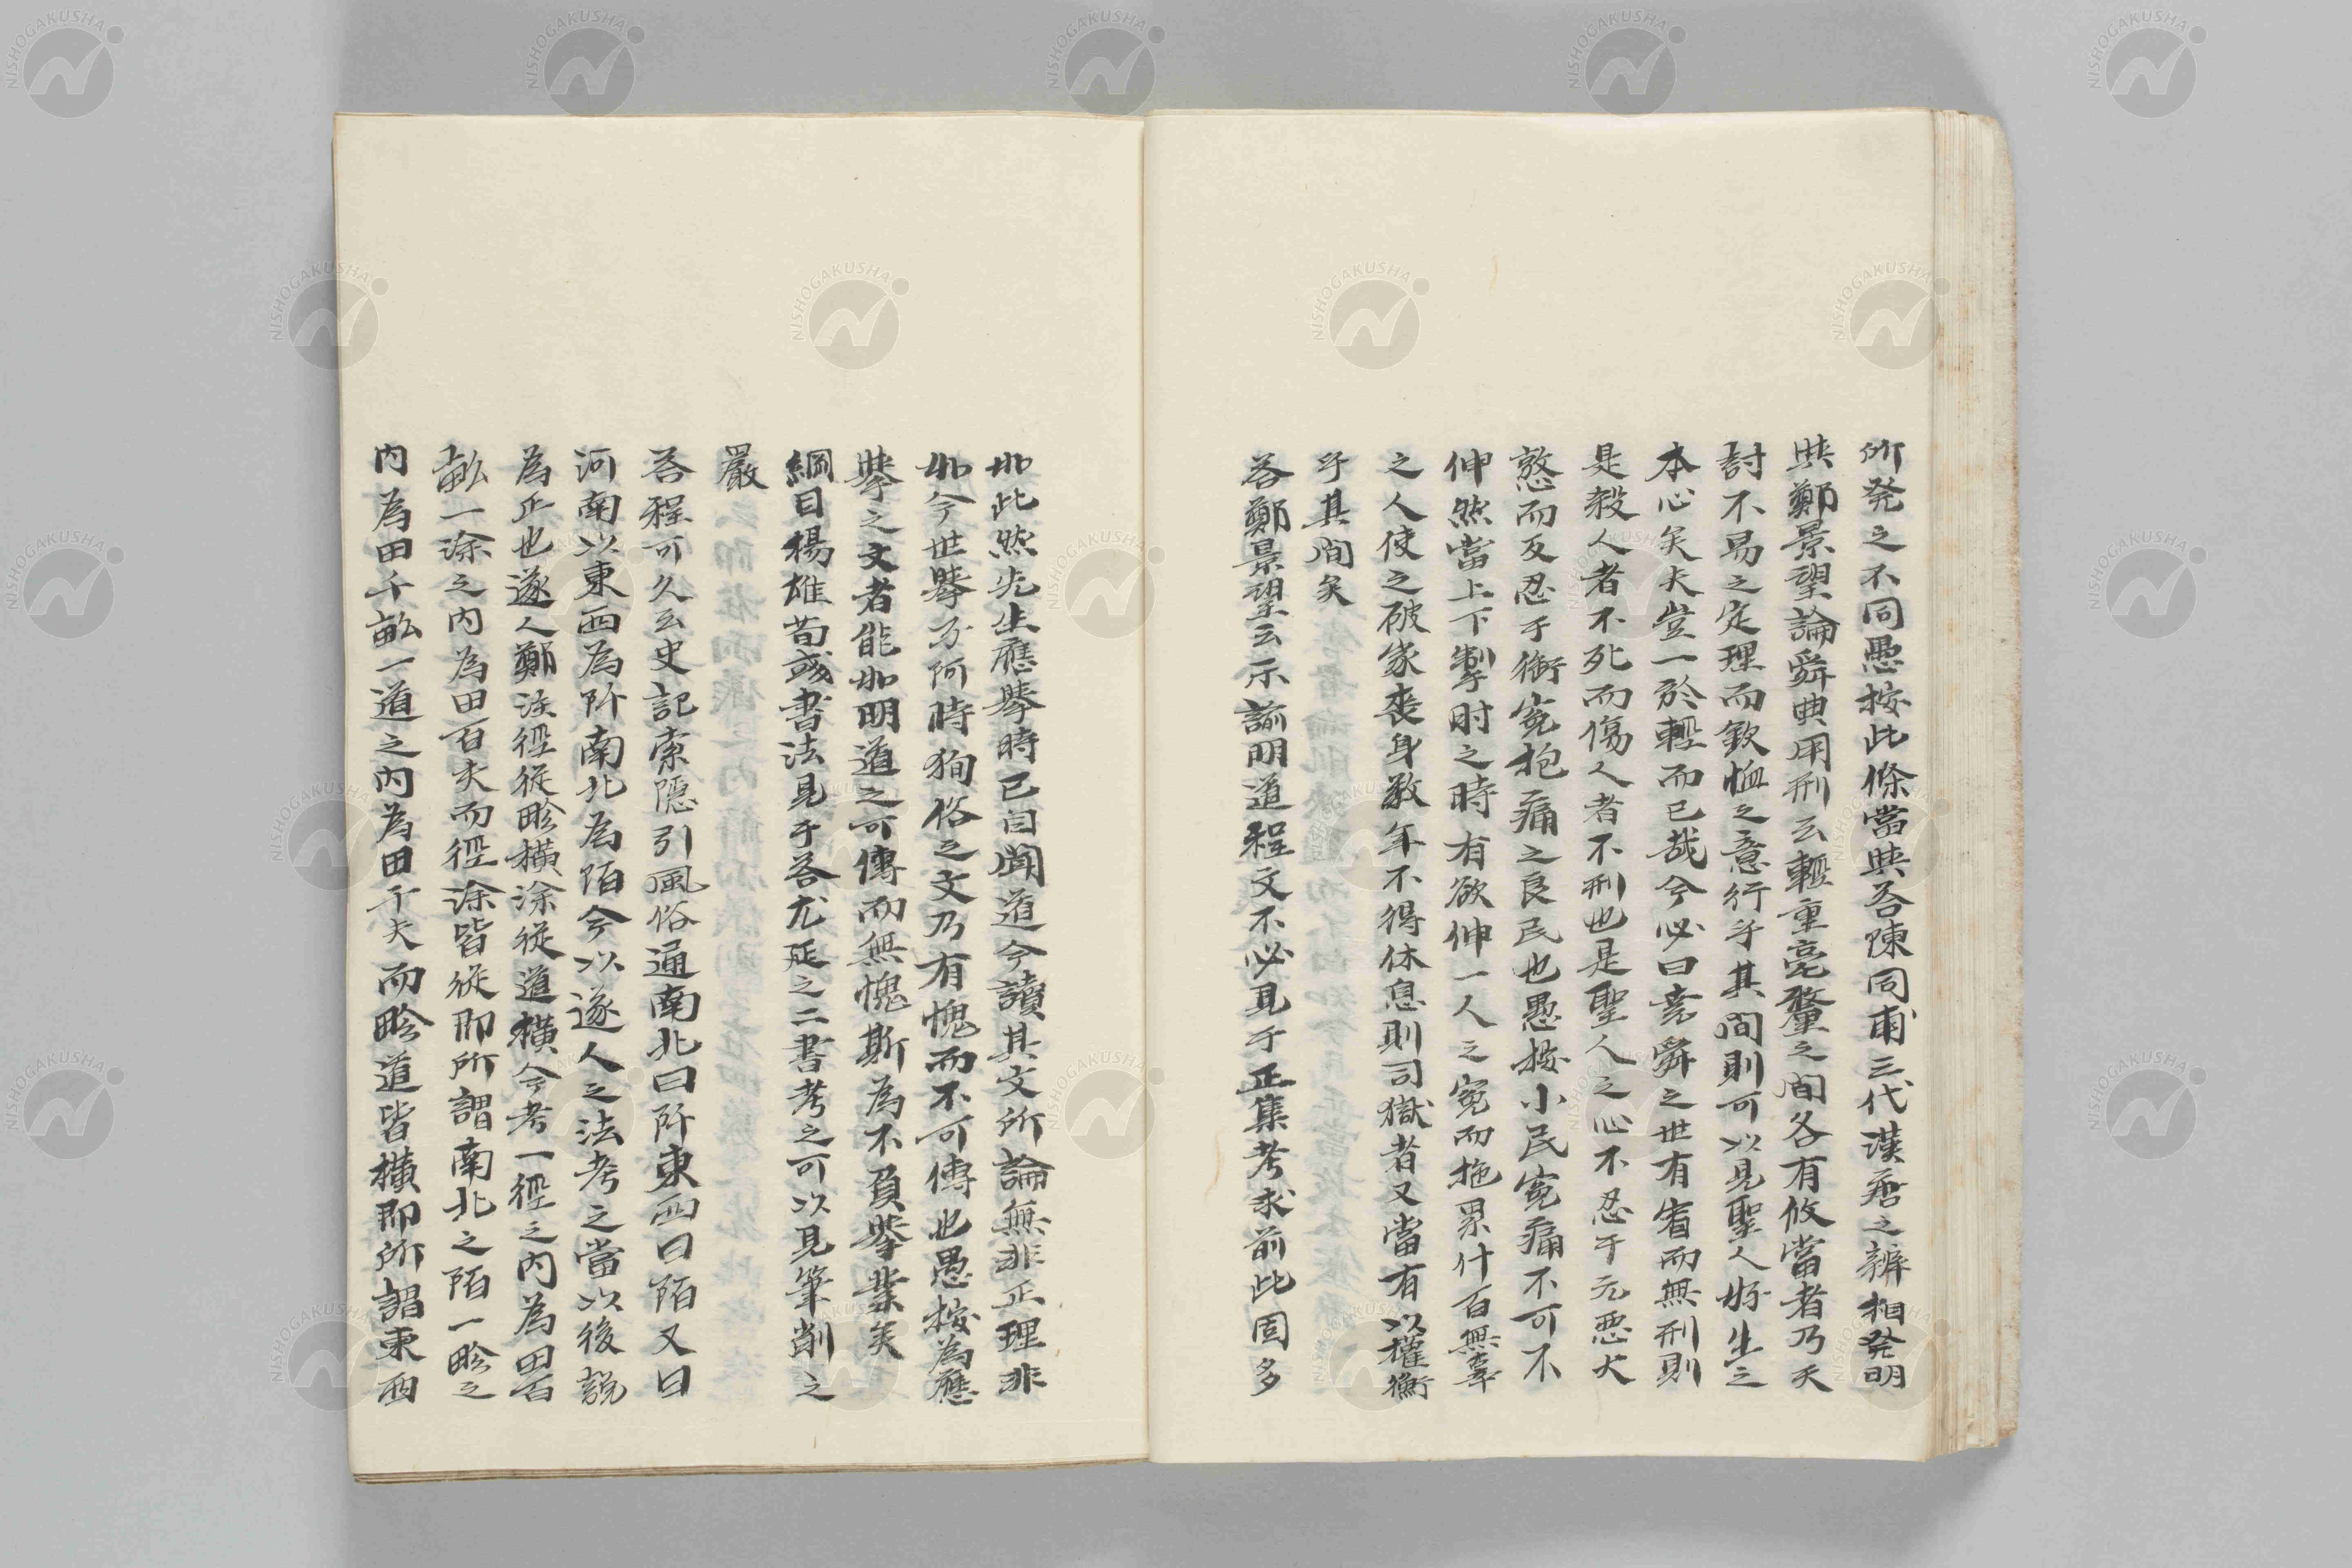 所発之不同愚按此條當與答陳同甫三代漢唐之辨相発明
與鄭景望論舜典用刑云輕重毫釐之間各有攸當者乃天
討不易之定理而欽恤之意行乎其間則可以見聖人好生之
本心矣夫豈一於輕而已哉今必曰堯舜之世有宥而無刑則
是殺人者不死而傷人者不刑也是聖人之心不忍于元悪大
憝而反忍于銜寃抱痛之良民也愚按小民寃痛不可不
伸然當上下掣肘之時有欲伸一人之寃而拖累什百無辜
之人使之破家喪身数年不得休息則司獄者又當有以權衡
乎其間矣
答鄭景望云示諭明道程文不必見于正集考求前此固多
如此然先生應舉時已自聞道今讀其文所論無非正理非
如今世舉子阿時狥俗之文乃有愧而不可傳也愚按為應
舉之文者能如明道之可傳而無愧斯為不負舉業矣
綱目楊雄荀彧書法見于答尤延之二書考之可以見筆削之
嚴
答程可久云史記索隱引風俗通南北曰阡東西曰陌又曰
河南以東西為阡南北為陌今以遂人之法考之當以後説
為正也遂人鄭注徑從畛橫涂從道橫今考一徑之内為田百
畝一涂之内為田百夫而徑涂皆從即所謂南北之陌一畛之
内為田千畝一道之内為田千夫而畛道皆橫即所謂東西
NISHOGAKUSHA